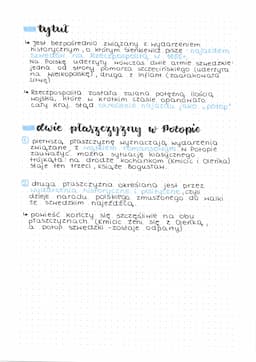 tytuł
↳ jest bezpośrednio związany z wydarzeniem
historycznym, o którym Sienkiewicz pisze - najazdem
szwedów na Rzeczpospolitą w 1655r.
Na Polskę uderzyły wówczas dwie armie szwedzkie:
jedna od strony pomorza szczecińskiego (uderzyła
na Wielkopolskę), druga z Inflant (zaatakowała
Litwę)
↳ Rzeczpospolita została zalana potężną ilością
wojska, które w krótkim czasie opanowało
cały kraj. Stąd określenie najazdu jako "potop"
dwie płaszczyzny w Potopie
① pierwszą płaszczyznę wyznaczają wydarzenia
związane z wątkiem romansowym. W Potopie
zauważyć można sytuację klasycznego
trójkąta: na drodze kochanków (Kmicic i Oleńka)
staje ten trzeci, książę Bogusław.
② druga płaszczyzna określana jest przez
wydarzenia historyczne i polityczne, czyli
dzieje narodu polskiego zmuszonego do walki
ze szwedzkim najeźdźcą.
↳ powieść kończy się szczęśliwie na obu
płaszczyznach (Kmicic żeni się z Oleńką,
a potop szwedzki zostaje odparty)